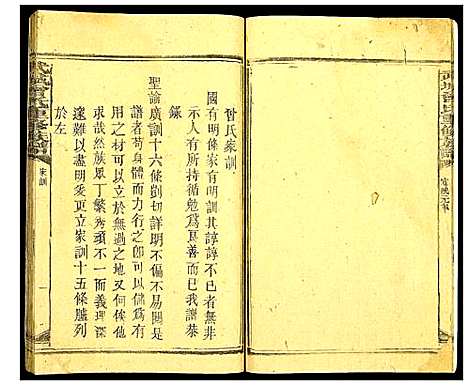 武城曾氏重修族譜
曾氏家訓
國有明條家有明訓其諄諄不者無非
示人有所持循勉爲爲善而已我譜恭
錄
聖諭廣訓十六條剴切詳明不偏不易閱是
譜者苟身體而力行之即可以儲爲有
用可以立於無過之地又何俟他
求哉然族眾丁繁秀頑不一而義理深
遠難以盡明爰更立家訓十五條臚列
於左
武城曾氏重修族譜
家訓
一